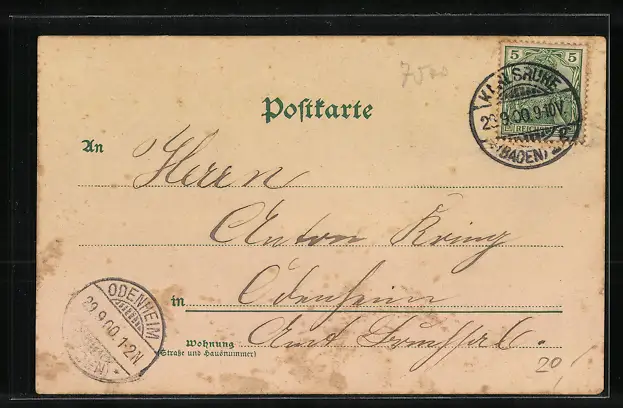 7500
5
REICHSPOST
KARLSRUHE
29.9.00.9-10V.
(BADEN) 2
Postkarte
An Herrn
Anton Kring
in Odenheim
Wohnung
(Straße und Hausnummer)
Amt Bruchsal.
ODENHEIM
29.9.00.1-2N
20